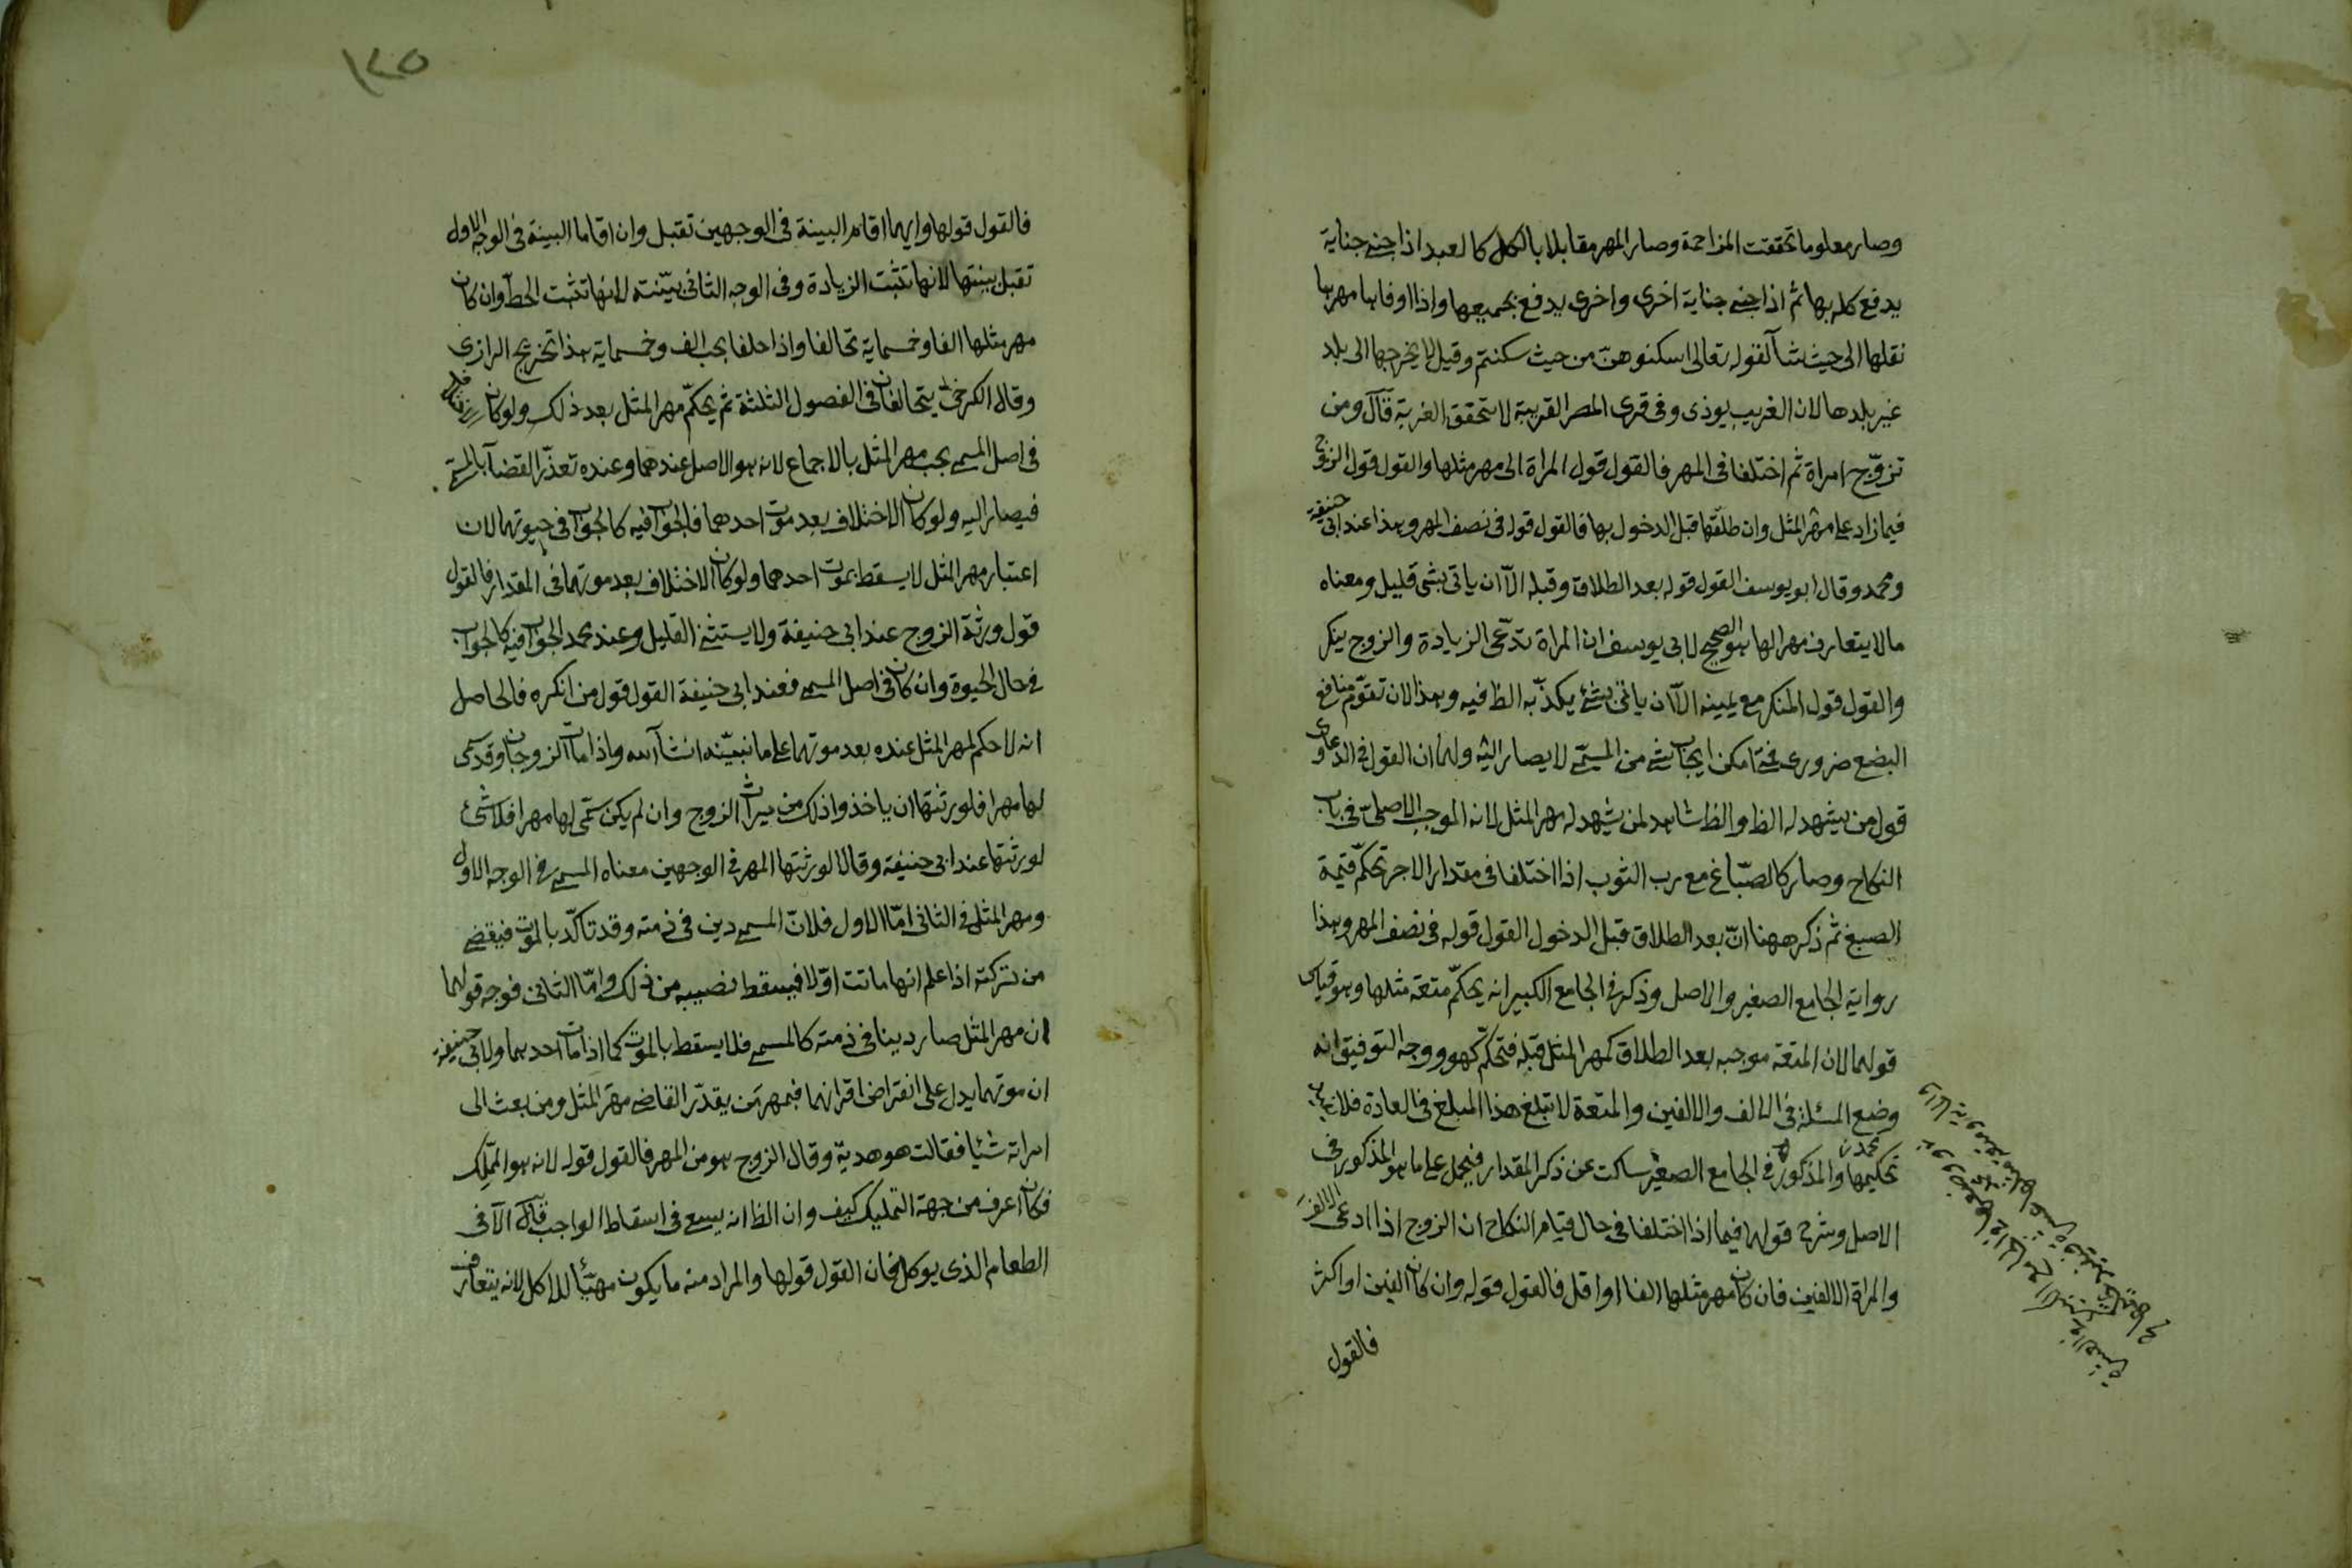 وصار معلوما تحققت المزاحمة وصار المهر مقابلا بالكل كالعبد اذا جنى جناية
يدفع كله بها ثم اذا جنى جناية اخرى واخرى يدفع بجميعها واذا اوفاها مهرها
نقلها الى حيث شآ لقوله تعالى اسكنوهنّ من حيث سكنتم وقيل لا يخرجها الى بلد
غير بلدها لان الغريب يوذى وفى قرى المصر القريبة لا تتحقق الغربة قال ومن
تزوّج امراة ثم اختلفا فى المهر فالقول قول المراة الى مهر مثلها والقول قول الزوج
فيما زاد على مهر المثل وان طلّقها قبل الدخول بها فالقول قوله فى نصف المهر وهذا عند ابى حنيفة
ومحمد وقال ابو يوسف القول قوله بعد الطلاق وقبله الّا ان ياتى بشى قليل ومعناه
ما لا يتعارف مهرا لها هو الصحيح لابى يوسف ان المراة تدّعى الزيادة والزوج ينكر
والقول قول المنكر مع يمينه الّا ان ياتى بشئ يكذّبه الظ فيه وهذا لان تقوّم منافع
البضع ضرورى فمتى امكن ايجاب شى من المسمّى لا يصار اليه ولهما ان القول فى الدعاوى
قول من يشهد له الظ والظ شاهد لمن يشهد له مهر المثل لانه الموجب الاصلىّ فى باب
النكاح وصار كالصبّاغ مع رب الثوب اذا اختلفا فى مقدار الاجر تحكّم قيمة
الصبغ ثم ذكر ههنا انّ بعد الطلاق قبل الدخول القول قوله فى نصف المهر وهذا
رواية الجامع الصغير والاصل وذكر فى الجامع الكبير انه يحكّم متعة مثلها وهو قياس
قولهما لان المتعة موجبه بعد الطلاق كمهر المثل قبله فتحكّم كهو ووجه التوفيق انه
وضع المسئلة فى الالف والالفين والمتعة لا تبلغ هذا المبلغ فى العادة فلا يفيد
تحكيمها والمذكور فى الجامع الصغير ساكت عن ذكر المقدار فيحمل على ما هو المذكور فى
الاصل وشرح قولهما فيما اذا اختلفا فى حال قيام النكاح ان الزوج اذا ادعى الالف
والمراة الالفين فان كان مهر مثلها الفا او اقل فالقول قوله وان كان الفين او اكثر
فالقول
١٢٥
فالقول قولها وايهما اقام البينة فى الوجهين تقبل وان اقاما البينة فى الوجه الاول
تقبل بينتها لانها تثبت الزيادة وفى الوجه الثانى بيّنته لانها تثبت الحطّ وان كان
مهر مثلها الفا وخمسماية تحالفا واذا حلفا يجب الف وخمسماية هذا تخريج الرازى
وقال الكرخى يتحالفان فى الفصول الثلثة ثم يحكّم مهر المثل بعد ذلك ولو كان
فى اصل المسمى يجب مهر المثل بالاجماع لانه هو الاصل عندهما وعنده تعذّر القضآ بالمسمى
فيصار اليه ولو كان الاختلاف بعد موت احدهما فالجواب فيه كالجواب فى حيوتهما لان
اعتبار مهر المثل لا يسقط بموت احدهما ولو كان الاختلاف بعد موتهما فى المقدار فالقول
قول ورثة الزوج عند ابى حنيفة ولا يستثنى القليل وعند محمد الجواب فيه كالجواب
فى حال الحيوة وان كان فى اصل المسمى فعند ابى حنيفة القول قول من انكره فالحاصل
انه لا حكم لمهر المثل عنده بعد موتهما على ما نبيّنه انشآ الله واذا مات الزوجان وقد سمّى
لها مهرا فلورثتها ان ياخذوا ذلك من ميراث الزوج وان لم يكن سمّى لها مهرا فلا شئ
لورثتها عند ابى حنيفة وقالا لورثتها المهر فى الوجهين معناه المسمى فى الوجه الاول
ومهر المثل فى الثانى امّا الاول فلانّ المسمى دين فى ذمته وقد تاكّد بالموت فيقضى
من تركته اذا علم انها ماتت اوّلا فيسقط نصيبه من ذلك وامّا الثانى فوجه قولهما
ان مهر المثل صار دينا فى ذمته كالمسمى فلا يسقط بالموت كما اذا مات احدهما ولابى حنيفة
ان موتهما يدل على انقراض اقرانهما فبمهر من يقدّر القاضى مهر المثل ومن بعث الى
امراته شئيا فقالت هو هديّة وقال الزوج هو من المهر فالقول قوله لانه هو المملّك
فكان اعرف من جهة التمليك كيف وان الظ انه يسعى فى اسقاط الواجب قال الّا فى
الطعام الذى يوكل فان القول قولها والمراد منه ما يكون مهيّأ للاكل لانه يتعارف